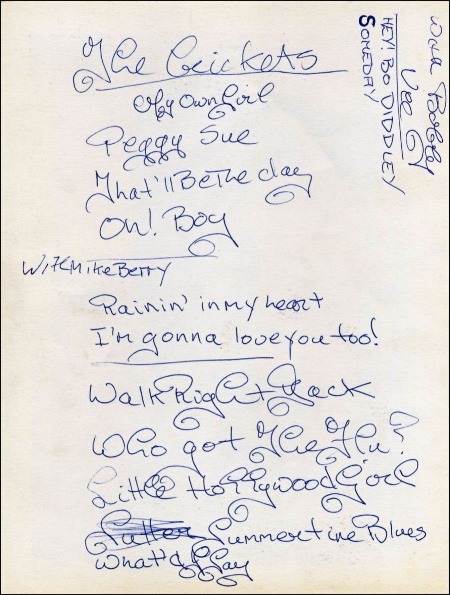 The Crickets
My Own Girl
Peggy Sue
That'll Be The day
Oh! Boy
With Mike Berry
Rainin' in my heart
I'm gonna love you too!
Walk Right Back
Who got The Flu?
Little Hollywood Girl
Summertime Blues
What'd I Say
With Bobby
Vee
HEY! BO DIDDLEY
SOMEDAY